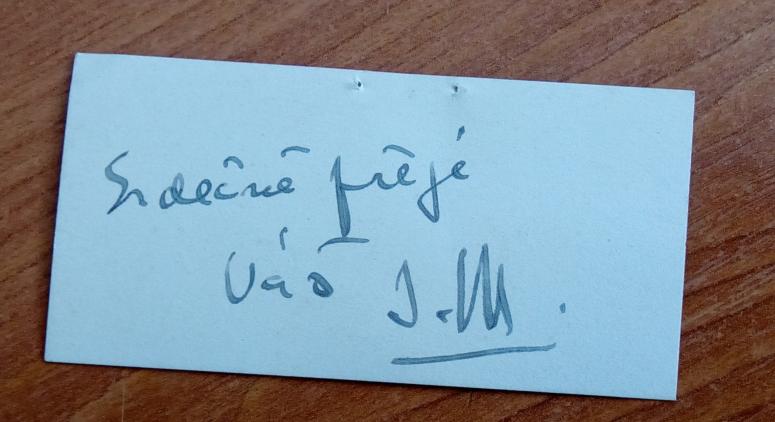 Srdečně přeje
Váš J.M.